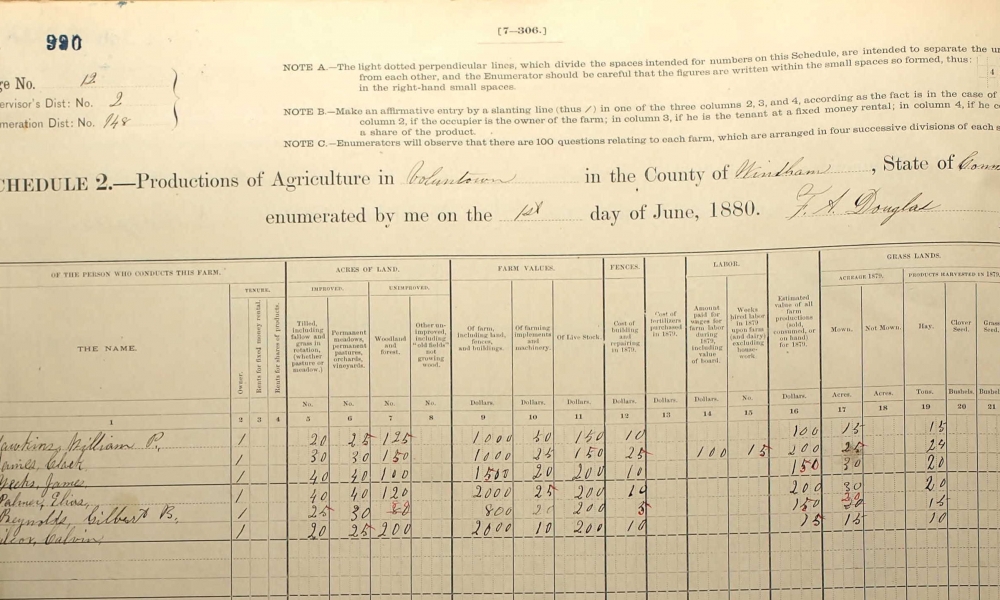 990
[7—306.]
ge No. 12
ervisor's Dist: No. 2
meration Dist: No. 148
NOTE A.—The light dotted perpendicular lines, which divide the spaces intended for numbers on this Schedule, are intended to separate the un
from each other, and the Enumerator should be careful that the figures are written within the small spaces so formed, thus: 4
in the right-hand small spaces.
NOTE B.—Make an affirmative entry by a slanting line (thus /) in one of the three columns 2, 3, and 4, according as the fact is in the case of
column 2, if the occupier is the owner of the farm; in column 3, if he is the tenant at a fixed money rental; in column 4, if he c
a share of the product.
NOTE C.—Enumerators will observe that there are 100 questions relating to each farm, which are arranged in four successive divisions of each
CHEDULE 2.—Productions of Agriculture in Voluntown in the County of Windham, State of Conn
enumerated by me on the 1st day of June, 1880. F. A. Douglas
OF THE PERSON WHO CONDUCTS THIS FARM. ACRES OF LAND. FARM VALUES. FENCES. LABOR. GRASS LANDS.
TENURE. IMPROVED. UNIMPROVED. ACREAGE 1879. PRODUCTS HARVESTED IN 1879.
THE NAME.
Owner.
Rents for fixed money rental.
Rents for shares of products.
Tilled, including fallow and grass in rotation, (whether pasture or meadow.)
Permanent meadows, permanent pastures, orchards, vineyards.
Woodland and forest.
Other unimproved, including "old fields" not growing wood.
Of farm, including land, fences, and buildings.
Of farming implements and machinery.
Of Live Stock.
Cost of building and repairing in 1879.
Cost of fertilizers purchased in 1879.
Amount paid for wages for farm labor during 1879, including value of board.
Weeks hired labor in 1879 upon farm (and dairy), excluding house-work.
Estimated value of all farm productions (sold, consumed, or on hand) for 1879.
Mown. Not Mown. Hay. Clover Seed. Gras Seed.
No. No. No. No. Dollars. Dollars. Dollars. Dollars. Dollars. Dollars. No. Dollars. Acres. Acres. Tons. Bushels. Bushel
1 2 3 4 5 6 7 8 9 10 11 12 13 14 15 16 17 18 19 20 21
awkins, William P. / 20 25 125 1000 50 150 10 100 15 15
James, Clark / 30 30 150 1000 25 150 25 100 15 200 25 24
James, / 40 40 100 1500 20 200 10 150 30 20
Palmer, Elias, / 40 40 120 2000 25 200 10 200 30 20
Reynolds, Gilbert B. / 25 30 800 20 200 5 150 15
Calvin, / 20 25 200 2000 10 200 10 15 15 10